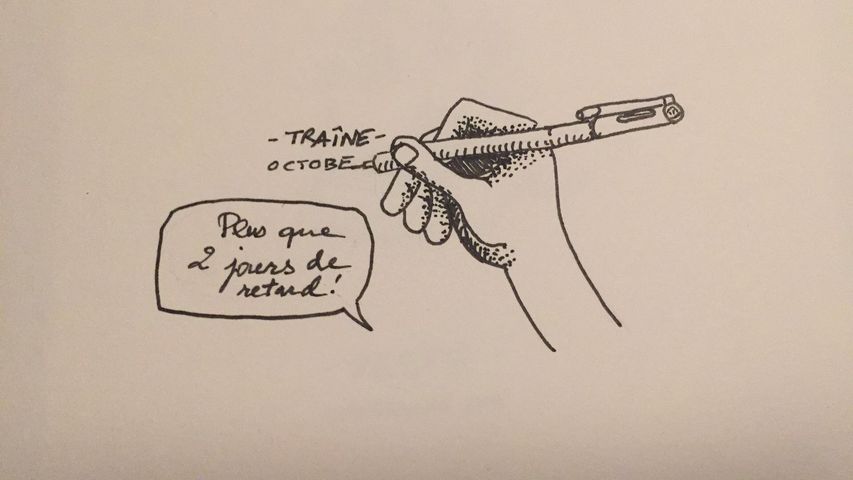 -TRAÎNE-
OCTOBE
Plus que
2 jours de
retard!